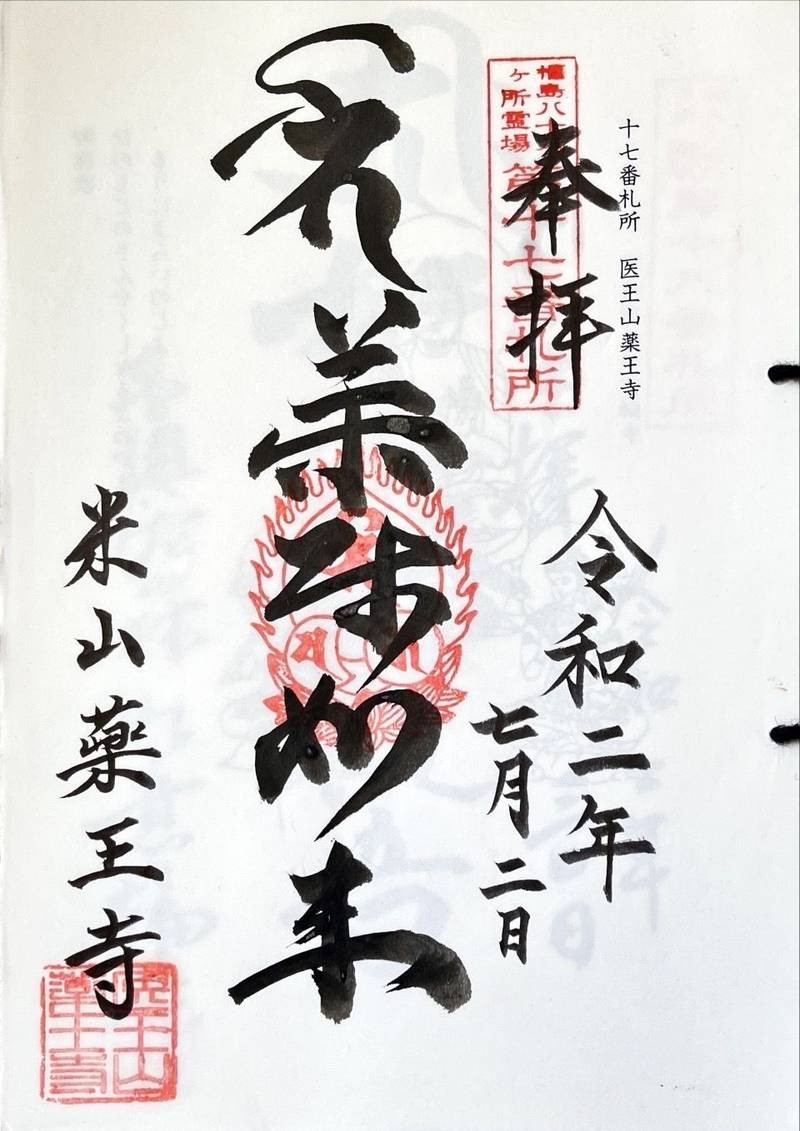 十七番札所　医王山薬王寺
奉拝
福島八十八
ヶ所霊場
第十七番札所
令和二年
七月二日
薬師如来
米山藥王寺
医王山
薬王寺